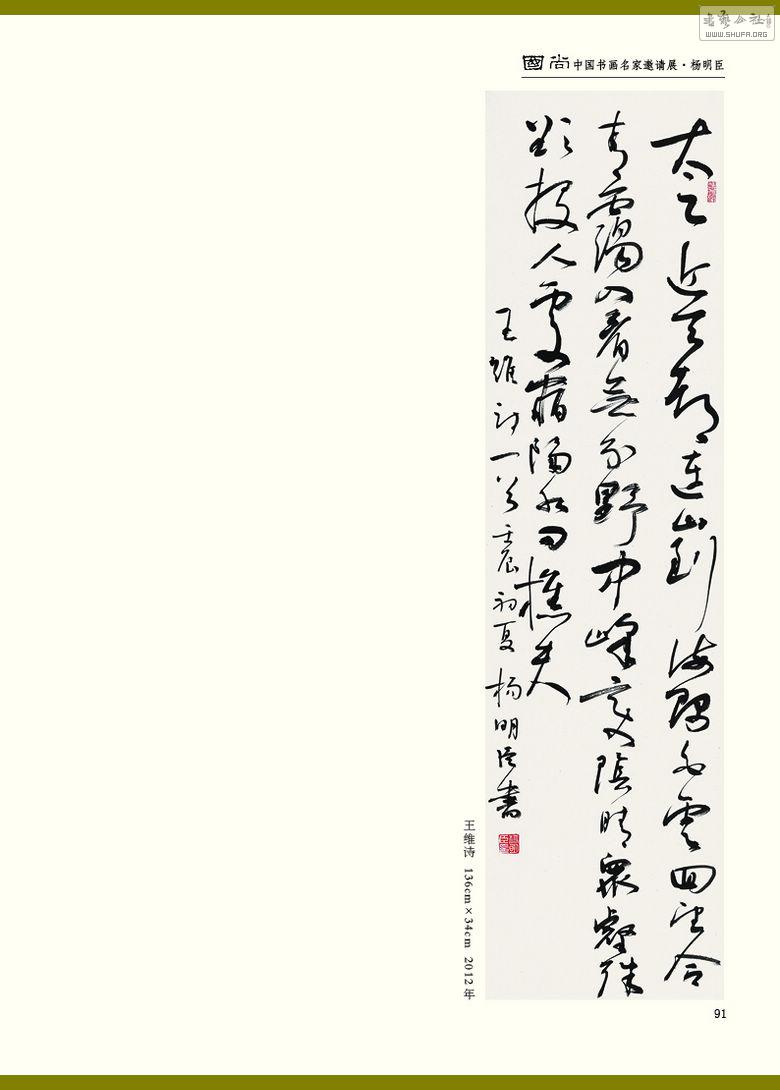 书艺公社
WWW.SHUFA.ORG
國尚 中国书画名家邀请展·杨明臣
太乙近天都連山到海隅白雲回望合
青靄入看無分野中峰變陰晴衆壑殊
欲投人處宿隔水問樵夫
王維詩一首 壬辰初夏 楊明臣書
王维诗 136cm×34cm 2012年
91